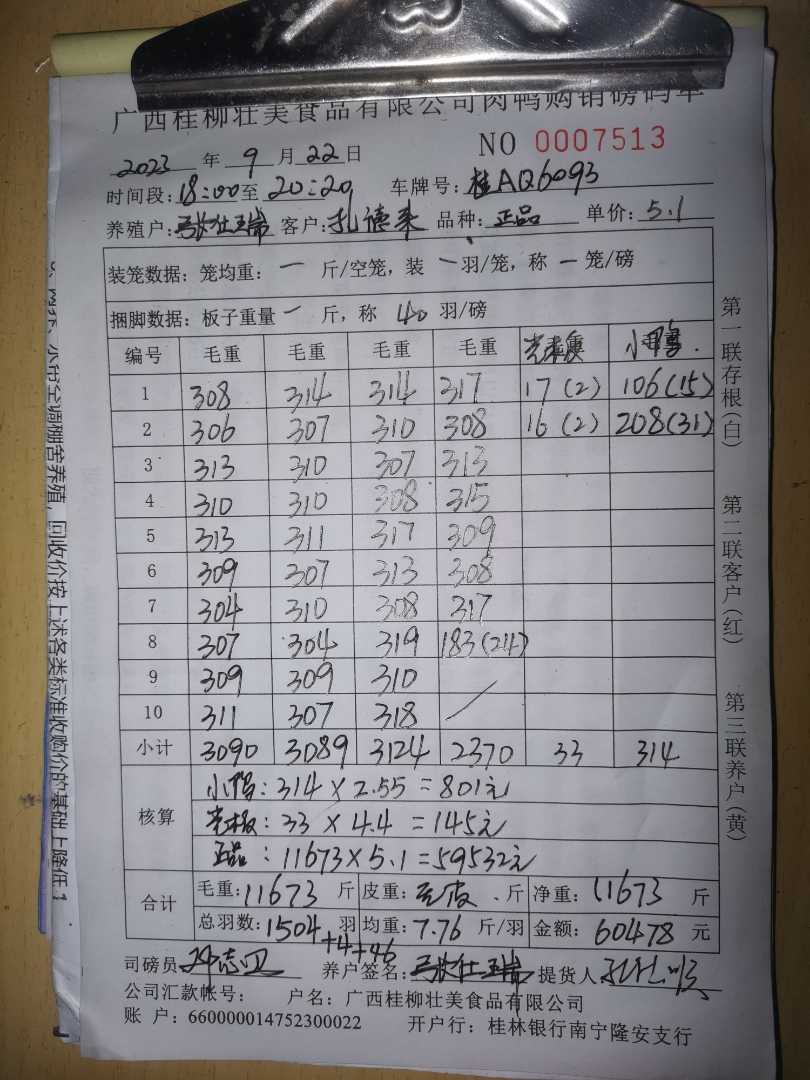 广西桂柳壮美食品有限公司肉鸭购销磅码单
NO 0007513
2023 年 9 月 22 日
时间段: 18:00 至 20:20 车牌号: 桂AQ6093
养殖户: 客户: 扎德来 品种: 正品 单价: 5.1
装笼数据: 笼均重: 一 斤/空笼, 装 一 羽/笼, 称 一 笼/磅
捆脚数据: 板子重量 一 斤, 称 40 羽/磅
编号 毛重 毛重 毛重 毛重 小鸭
1 308 314 314 317 17(2) 106(15)
2 306 307 310 308 16(2) 208(31)
3 313 310 307 313
4 310 310 308 315
5 313 311 317 309
6 309 307 313 308
7 304 310 308 317
8 307 304 319 183(24)
9 309 309 310
10 311 307 318 /
小计 3090 3089 3124 2370 33 314
核算
小鸭: 314 × 2.55 = 801元
33 × 4.4 = 145元
正品: 11673 × 5.1 = 59532元
合计
毛重: 11673 斤 皮重: 斤 净重: 11673 斤
总羽数: 1504 羽 均重: 7.76 斤/羽 金额: 60478 元
+4+46
司磅员 养户签名: 提货人
公司汇款帐号: 户名: 广西桂柳壮美食品有限公司
账 户: 660000014752300022 开户行: 桂林银行南宁隆安支行
第一联存根(白) 第二联客户(红) 第三联养户(黄)
小棚全调棚舍养殖, 回收价按上述各类标准收购价的基础上降低1